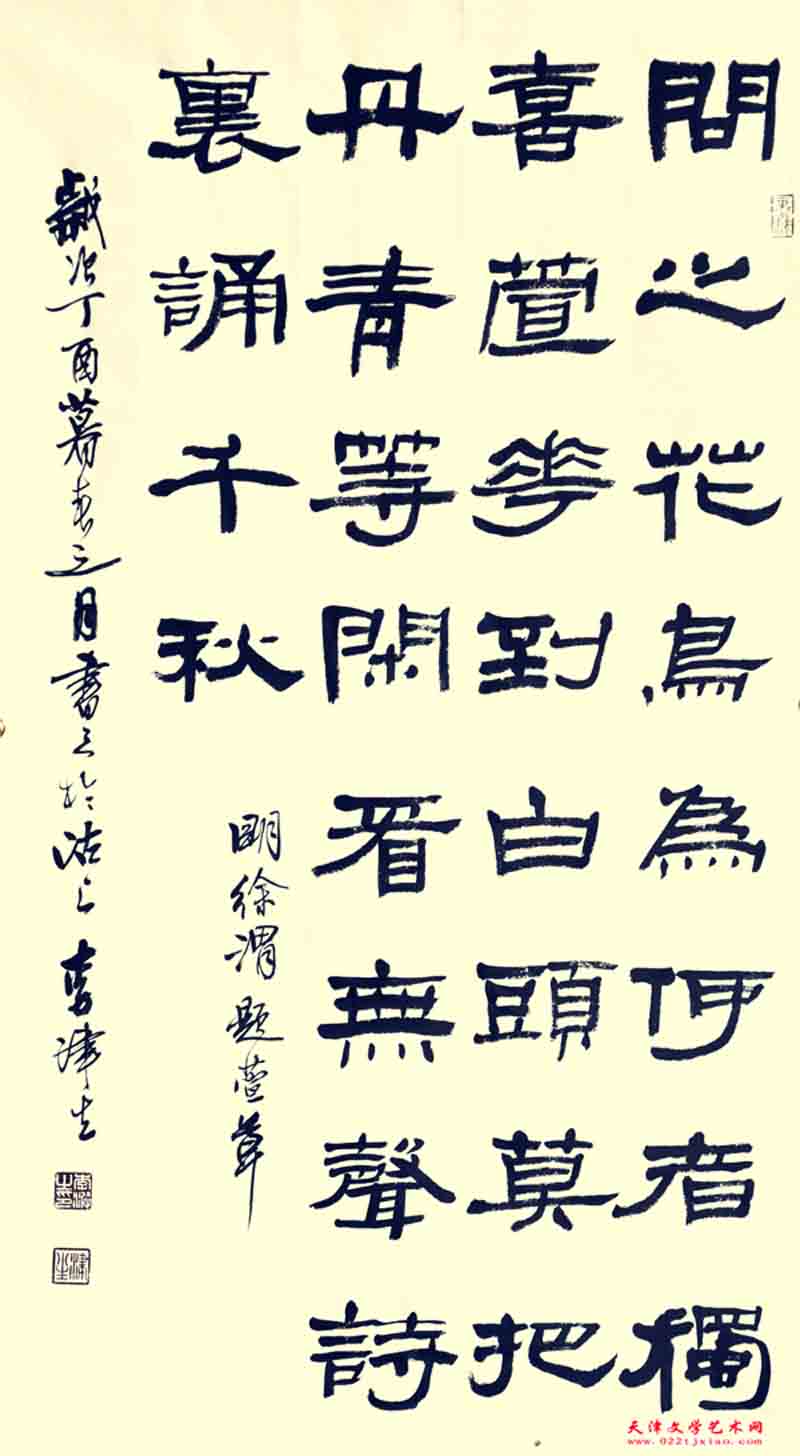 問之花鳥為何者獨
喜萱花到白頭莫把
丹青等閑看無聲詩
裏誦千秋
明徐渭題萱草
歲次丁酉暮春三月書之於沽上李津生
津生
天津文学艺术网
www.022tjxiao.com